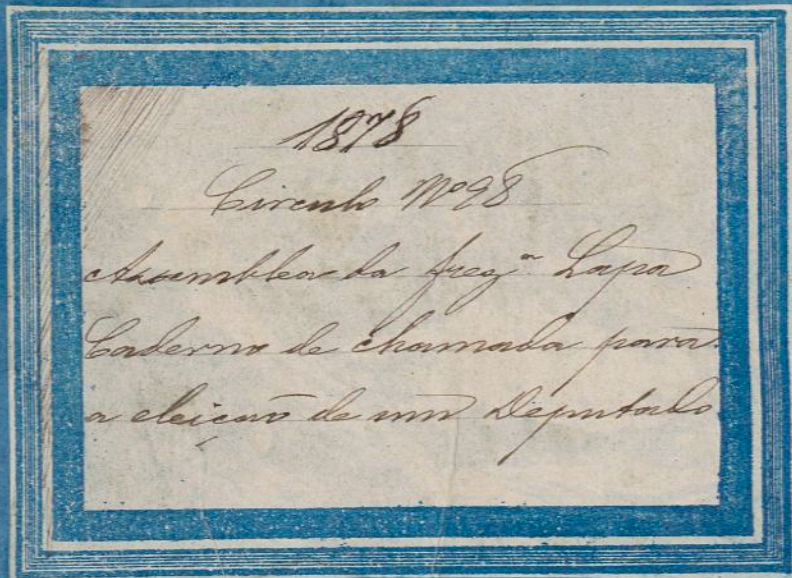 1878
Circulo Nº 98
Assemblea da fregª Lapa
Caderno de chamada para
a eleicaõ de um Deputado